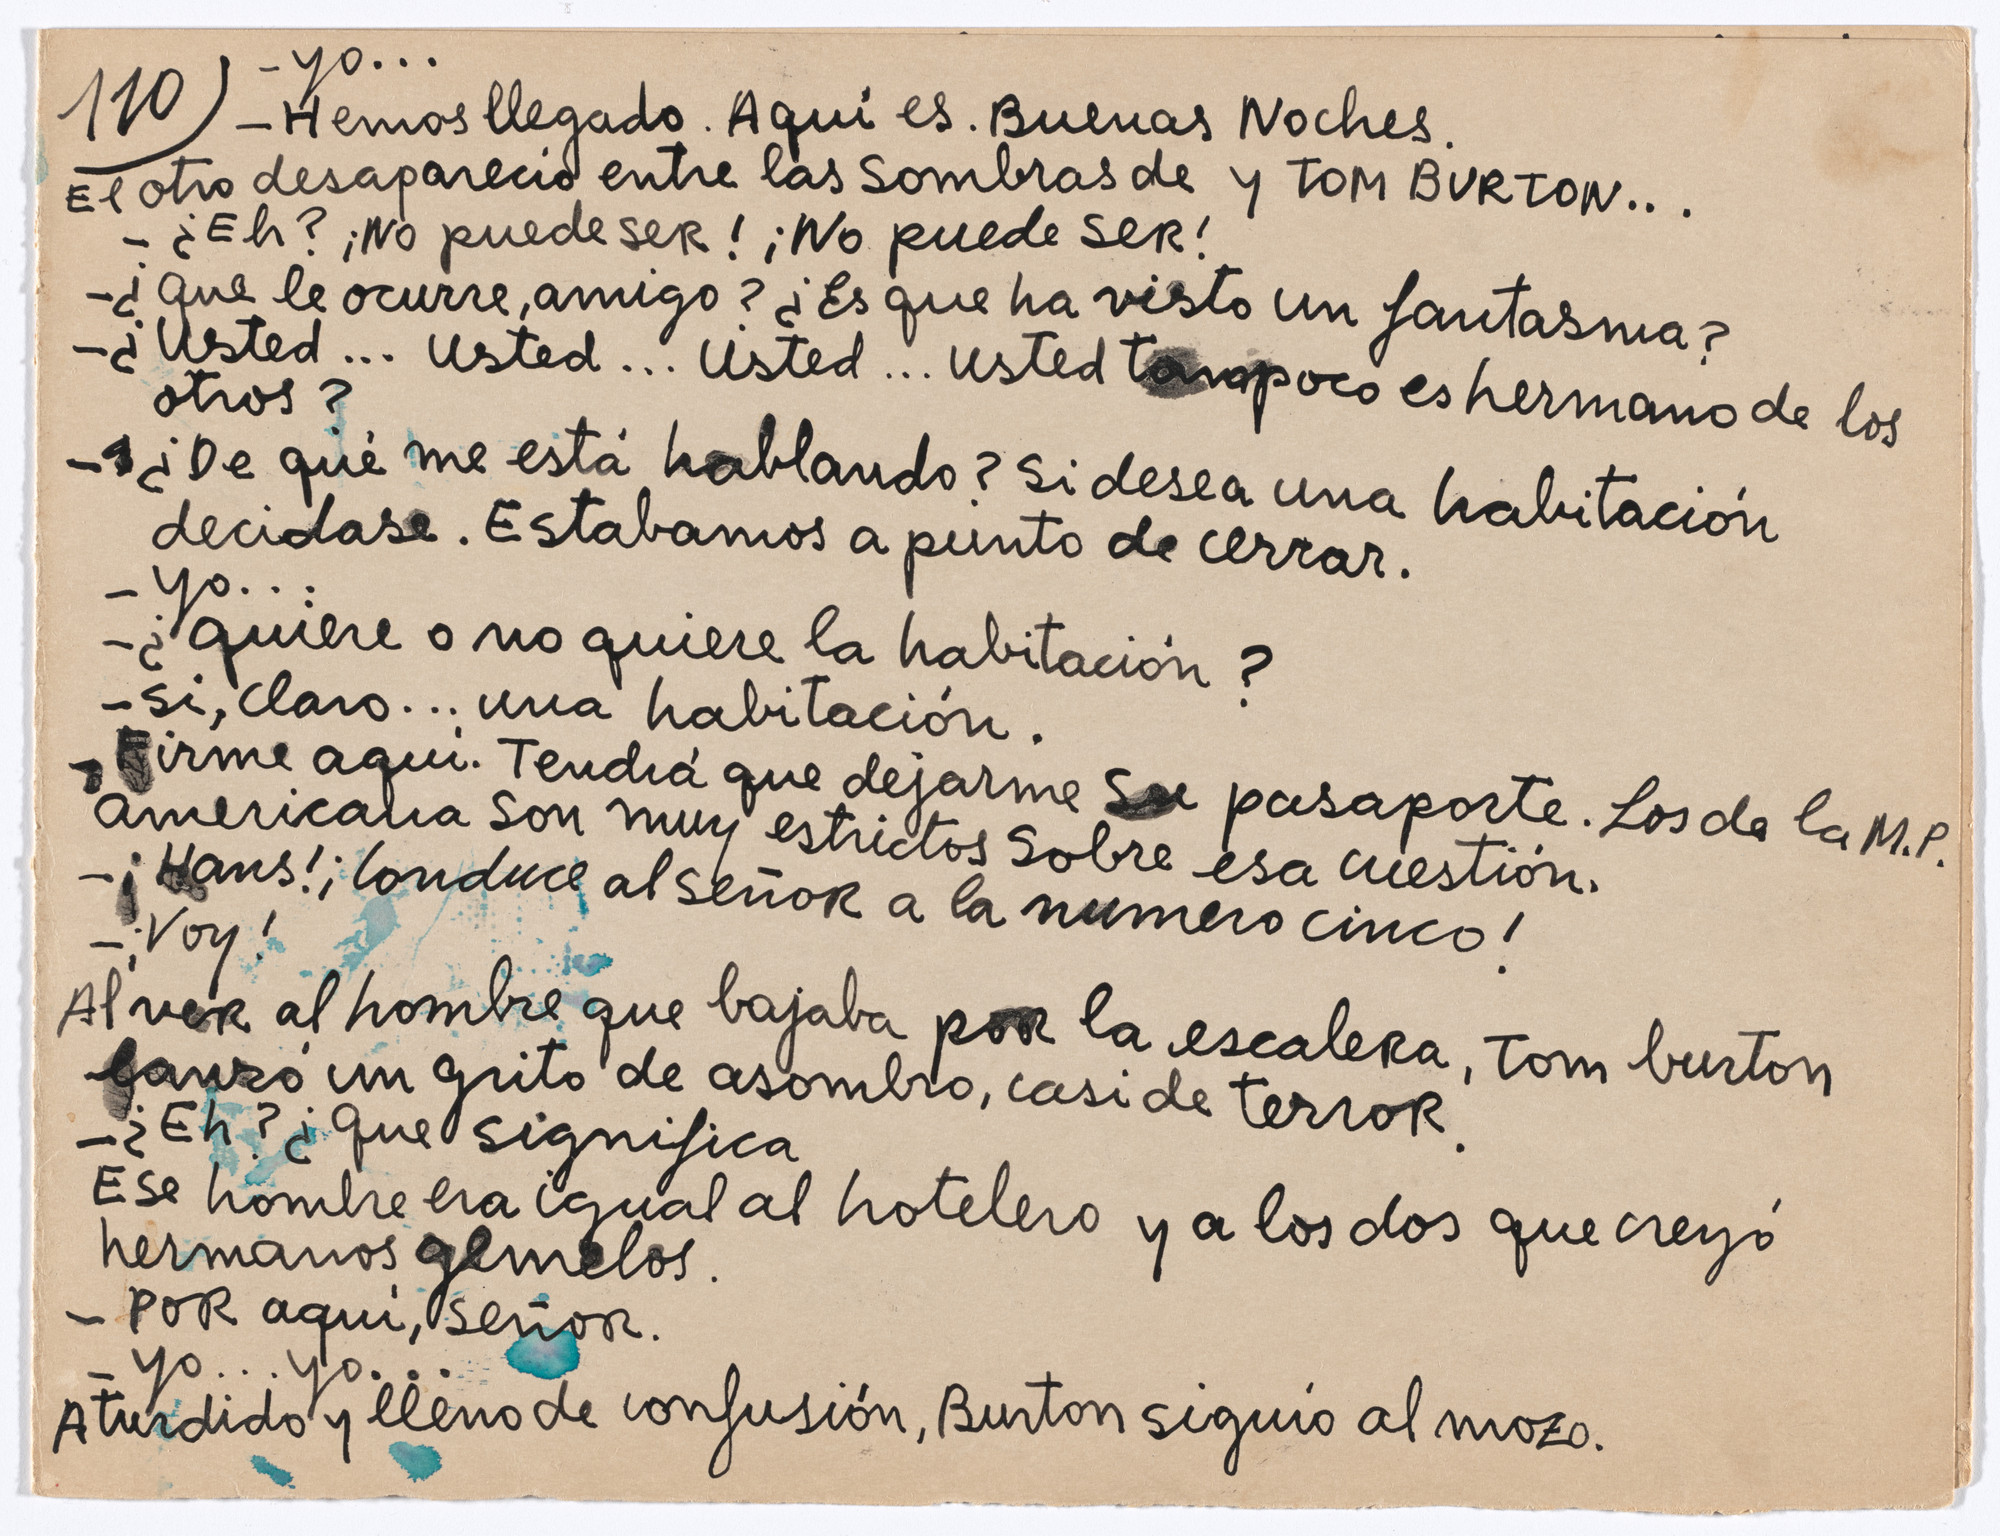 110) - yo...
- Hemos llegado. Aquí es. Buenas Noches.
El otro desapareció entre las sombras de y TOM BURTON...
- ¿Eh? ¡No puede ser! ¡No puede ser!
- ¿Que le ocurre, amigo? ¿Es que ha visto un fantasma?
- ¿Usted... usted... usted... usted tampoco es hermano de los
otros?
- ¿De qué me está hablando? Si desea una habitación
decidase. Estabamos a punto de cerrar.
- yo...
- ¿Quiere o no quiere la habitación?
- Si, claro... una habitación.
- Firme aquí. Tendrá que dejarme su pasaporte. Los de la M.P.
americana son muy estrictos sobre esa cuestión.
- ¡Hans! ¡Conduce al señor a la numero cinco!
- ¡Voy!
Al ver al hombre que bajaba por la escalera, Tom burton
lanzó un grito de asombro, casi de terror.
- ¿Eh? ¿Que significa
Ese hombre era igual al hotelero y a los dos que creyó
hermanos gemelos.
- POR aquí, señor.
- yo... yo...
Aturdido y lleno de confusión, Burton siguió al mozo.